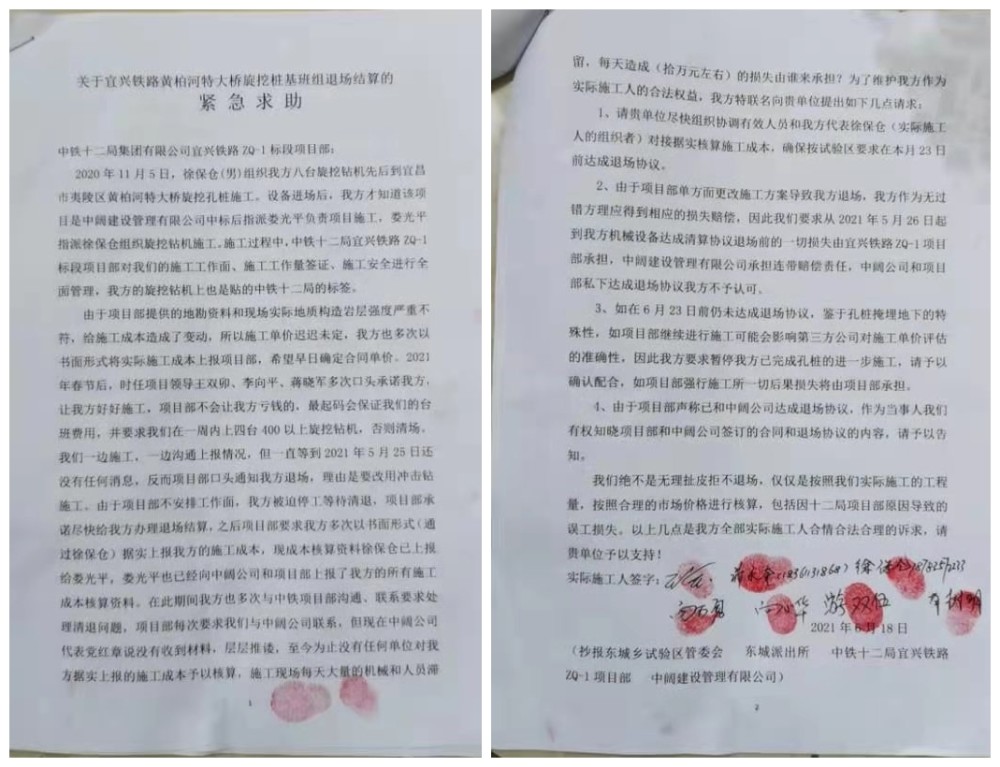 关于宜兴铁路黄柏河特大桥旋挖桩基班组退场结算的
紧急求助
中铁十二局集团有限公司宜兴铁路 ZQ-1 标段项目部：
2020 年 11 月 5 日，徐保仓(男)组织我方八台旋挖钻机先后到宜昌
市夷陵区黄柏河特大桥旋挖孔桩施工。设备进场后，我方才知道该项
目是中阔建设管理有限公司中标后指派娄光平负责项目施工，娄光平
指派徐保仓组织旋挖钻机施工。施工过程中，中铁十二局宜兴铁路 ZQ-1
标段项目部对我们的施工工作面、施工工作量签证、施工安全进行全
面管理，我方的旋挖钻机上也是贴的中铁十二局的标签。
由于项目部提供的地勘资料和现场实际地质构造岩层强度严重不
符，给施工成本造成了变动，所以施工单价迟迟未定，我方也多次以
书面形式将实际施工成本上报项目部，希望早日确定合同单价。2021
年春节后，时任项目领导王双卯、李向平、蒋晓军多次口头承诺我方，
让我方好好施工，项目部不会让我方亏钱的，最起码会保证我们的台
班费用，并要求我们在一周内上四台 400 以上旋挖钻机，否则清场。
我们一边施工，一边沟通上报情况，但一直等到 2021 年 5 月 25 日还
没有任何消息，反而项目部口头通知我方退场，理由是要改用冲击钻
施工。由于项目部不安排工作面，我方被迫停工等待清退，项目部承
诺尽快给我方办理退场结算，之后项目部要求我方多次以书面形式（通
过徐保仓）据实上报我方的施工成本，现成本核算资料徐保仓已上报
给娄光平，娄光平也已经向中阔公司和项目部上报了我方的所有施工
成本核算资料。在此期间我方也多次与中铁项目部沟通、联系要求处
理清退问题，项目部每次要求我们与中阔公司联系，但现在中阔公司
代表党红章说没有收到材料，层层推诿，至今为止没有任何单位对我
方据实上报的施工成本予以核算，施工现场每天大量的机械和人员滞
1
留，每天造成（拾万元左右）的损失由谁来承担？为了维护我方作为
实际施工人的合法权益，我方特联名向贵单位提出如下几点请求：
1、请贵单位尽快组织协调有效人员和我方代表徐保仓（实际施工
人的组织者）对接据实核算施工成本，确保按试验区要求在本月 23 日
前达成退场协议。
2、由于项目部单方面更改施工方案导致我方退场，我方作为无过
错方理应得到相应的损失赔偿，因此我们要求从 2021 年 5 月 26 日起
到我方机械设备达成清算协议退场前的一切损失由宜兴铁路 ZQ-1 项目
部承担，中阔建设管理有限公司承担连带赔偿责任，中阔公司和项目
部私下达成退场协议我方不予认可。
3、如在 6 月 23 日前仍未达成退场协议，鉴于孔桩掩埋地下的特
殊性，如项目部继续进行施工可能会影响第三方公司对施工单价评估
的准确性，因此我方要求暂停我方已完成孔桩的进一步施工，请予以
确认配合，如项目部强行施工所一切后果损失将由项目部承担。
4、由于项目部声称已和中阔公司达成退场协议，作为当事人我们
有权知晓项目部和中阔公司签订的合同和退场协议的内容，请予以告
知。
我们绝不是无理扯皮拒不退场，仅仅是按照我们实际施工的工程
量，按照合理的市场价格进行核算，包括因十二局项目部原因导致的
误工损失。以上几点是我方全部实际施工人合情合法合理的诉求，请
贵单位予以支持！
实际施工人签字： 徐保仓
双伍
2021 年 6 月 18 日
（抄报东城乡试验区管委会 东城派出所 中铁十二局宜兴铁路
ZQ-1 项目部 中阔建设管理有限公司）
2